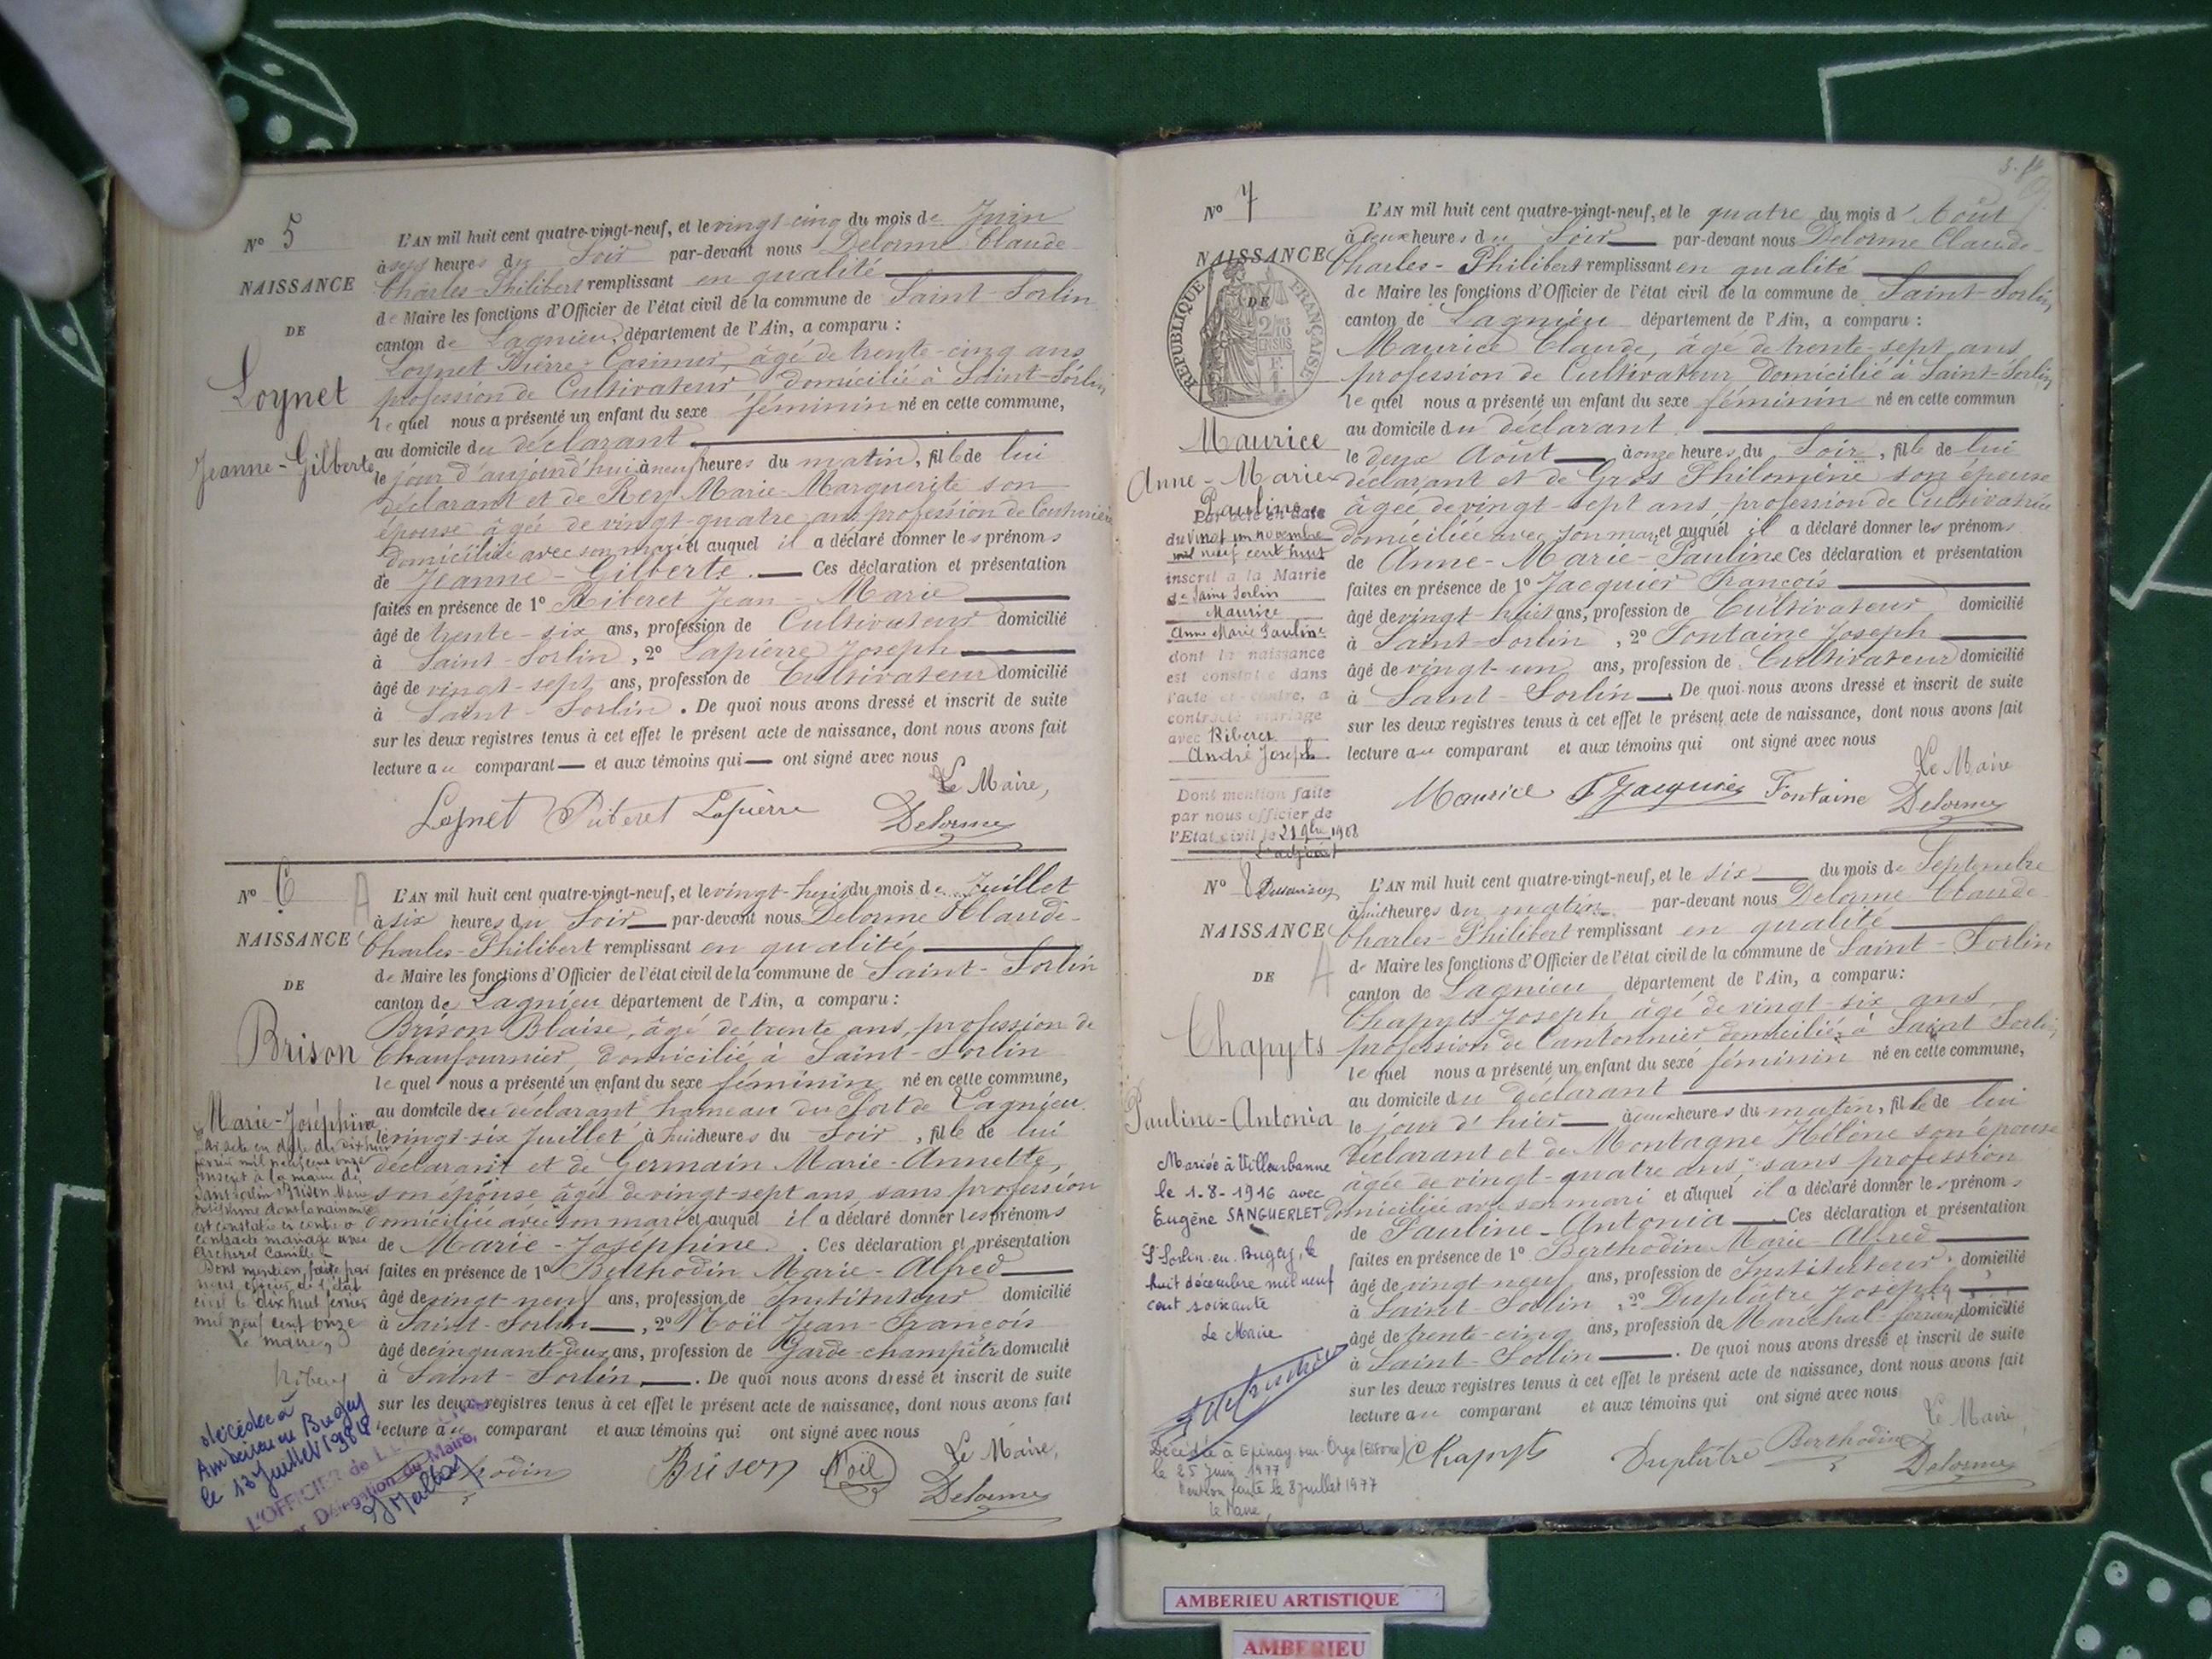 Nº 5
NAISSANCE
DE
Loynet
Jeanne-Gilberte
L'AN mil huit cent quatre-vingt-neuf, et le vingt-cinq du mois de Juin
à sept heures du Soir par-devant nous Delorme Claude
Charles-Philibert remplissant en qualité
de Maire les fonctions d'Officier de l'état civil de la commune de Saint-Sorlin
canton de Lagnieu, département de l'Ain, a comparu :
Loynet Pierre-Casimir, âgé de trente-cinq ans
profession de Cultivateur domicilié à Saint-Sorlin
lequel nous a présenté un enfant du sexe féminin né en cette commune,
au domicile du déclarant
le jour d'aujourd'hui à neuf heures du matin, fille de lui
déclarant et de Rey Marie-Marguerite son
épouse âgée de vingt-quatre ans profession de Couturière
domiciliée avec son mari et auquel il a déclaré donner les prénoms
de Jeanne-Gilberte. Ces déclaration et présentation
faites en présence de 1º Riberet Jean-Marie
âgé de trente-six ans, profession de Cultivateur domicilié
à Saint-Sorlin, 2º Lapierre Joseph
âgé de vingt-sept ans, profession de Cultivateur domicilié
à Saint-Sorlin. De quoi nous avons dressé et inscrit de suite
sur les deux registres tenus à cet effet le présent acte de naissance, dont nous avons fait
lecture au comparant et aux témoins qui ont signé avec nous
Le Maire,
Loynet Riberet Lapierre Delorme
Nº 6
A
NAISSANCE
DE
Brison
Marie-Joséphine
Par acte en date du dix huit
février mil neuf cent onze
inscrit à la mairie de
Saint Sorlin Brison Marie
Joséphine dont la naissance
est constatée ci contre a
contracté mariage avec
Camille
Dont mention faite par
nous officier de l'état
civil le dix huit février
mil neuf cent onze
Le maire,
décédée à
Ambérieu en Bugey
le 13 Juillet 1984
L'OFFICIER de L'
Délégation du Maire,
L'AN mil huit cent quatre-vingt-neuf, et le vingt-huit du mois de Juillet
à six heures du Soir par-devant nous Delorme Claude-
Charles-Philibert remplissant en qualité
de Maire les fonctions d'Officier de l'état civil de la commune de Saint-Sorlin
canton de Lagnieu département de l'Ain, a comparu :
Brison Blaise, âgé de trente ans, profession de
Chaufournier, domicilié à Saint-Sorlin
lequel nous a présenté un enfant du sexe féminin né en cette commune,
au domicile du déclarant hameau du Port de Lagnieu
le vingt-six Juillet à huit heures du Soir, fille de lui
déclarant et de Germain Marie-Annette,
son épouse âgée de vingt-sept ans sans profession
domiciliée avec son mari et auquel il a déclaré donner les prénoms
de Marie-Joséphine. Ces déclaration et présentation
faites en présence de 1º Berthodin Marie-Alfred
âgé de vingt neuf ans, profession de Instituteur domicilié
à Saint-Sorlin, 2º Noël Jean-François
âgé de cinquante-deux ans, profession de Garde-champêtre domicilié
à Saint-Sorlin. De quoi nous avons dressé et inscrit de suite
sur les deux registres tenus à cet effet le présent acte de naissance, dont nous avons fait
lecture au comparant et aux témoins qui ont signé avec nous
Le Maire,
Berthodin Brison Noël Delorme
Nº 7
NAISSANCE
DE
RÉPUBLIQUE FRANÇAISE
Maurice
Anne-Marie
Pauline
Par acte en date
du vingt un novembre
mil neuf cent huit
inscrit a la Mairie
de Saint Sorlin
Maurice
Anne Marie Pauline
dont la naissance
est constatée dans
l'acte ci-contre, a
contracté mariage
avec Riberet
André Joseph
Dont mention faite
par nous officier de
l'Etat civil le 21 9bre 1908
L'adjoint
L'AN mil huit cent quatre-vingt-neuf, et le quatre du mois d'Août
à deux heures du Soir par-devant nous Delorme Claude
Charles-Philibert remplissant en qualité
de Maire les fonctions d'Officier de l'état civil de la commune de Saint-Sorlin,
canton de Lagnieu département de l'Ain, a comparu :
Maurice Claude, âgé de trente-sept ans
profession de Cultivateur domicilié à Saint-Sorlin,
lequel nous a présenté un enfant du sexe féminin né en cette commun
au domicile du déclarant.
le deux Août à onze heures du Soir, fille de lui
déclarant et de Gros Philomène son épouse
âgée de vingt-sept ans, profession de Cultivatrice
domiciliée avec son mari et auquel il a déclaré donner les prénoms
de Anne-Marie-Pauline Ces déclaration et présentation
faites en présence de 1º Jacquier François
âgé de vingt-huit ans, profession de Cultivateur domicilié
à Saint-Sorlin, 2º Fontaine Joseph
âgé de vingt-un ans, profession de Cultivateur domicilié
à Saint-Sorlin. De quoi nous avons dressé et inscrit de suite
sur les deux registres tenus à cet effet le présent acte de naissance, dont nous avons fait
lecture au comparant et aux témoins qui ont signé avec nous
Le Maire
Maurice F Jacquier Fontaine Delorme
Nº 8
NAISSANCE
DE
A
Chapyts
Pauline-Antonia
Mariée à Villeurbanne
le 1-8-1916 avec
Eugène SANGUERLET
St Sorlin-en-Bugey, le
huit décembre mil neuf
cent soixante
Le Maire
Décédée à Epinay-sur-Orge (Essonne)
le 25 Juin 1977
Mention faite le 8 juillet 1977
Le Maire,
L'AN mil huit cent quatre-vingt-neuf, et le six du mois de Septembre
à huit heures du matin par-devant nous Delorme Claude
Charles-Philibert remplissant en qualité
de Maire les fonctions d'Officier de l'état civil de la commune de Saint-Sorlin
canton de Lagnieu département de l'Ain, a comparu:
Chapyts Joseph âgé de vingt-six ans,
profession de Cantonnier domicilié à Saint Sorlin,
lequel nous a présenté un enfant du sexe féminin né en cette commune,
au domicile du déclarant
le jour d'hier à heures du matin, fille de lui
déclarant et de Montagne Hélène son épouse
âgée de vingt-quatre ans, sans profession
domiciliée avec son mari et auquel il a déclaré donner les prénoms
de Pauline-Antonia. Ces déclaration et présentation
faites en présence de 1º Berthodin Marie-Alfred
âgé de vingt neuf ans, profession de Instituteur domicilié
à Saint-Sorlin, 2º Duplâtre Joseph
âgé de trente-cinq ans, profession de Maréchal-ferrant domicilié
à Saint-Sorlin. De quoi nous avons dressé et inscrit de suite
sur les deux registres tenus à cet effet le présent acte de naissance, dont nous avons fait
lecture au comparant et aux témoins qui ont signé avec nous
Le Maire
Chapyts Duplâtre Berthodin Delorme
AMBERIEU ARTISTIQUE
AMBERIEU